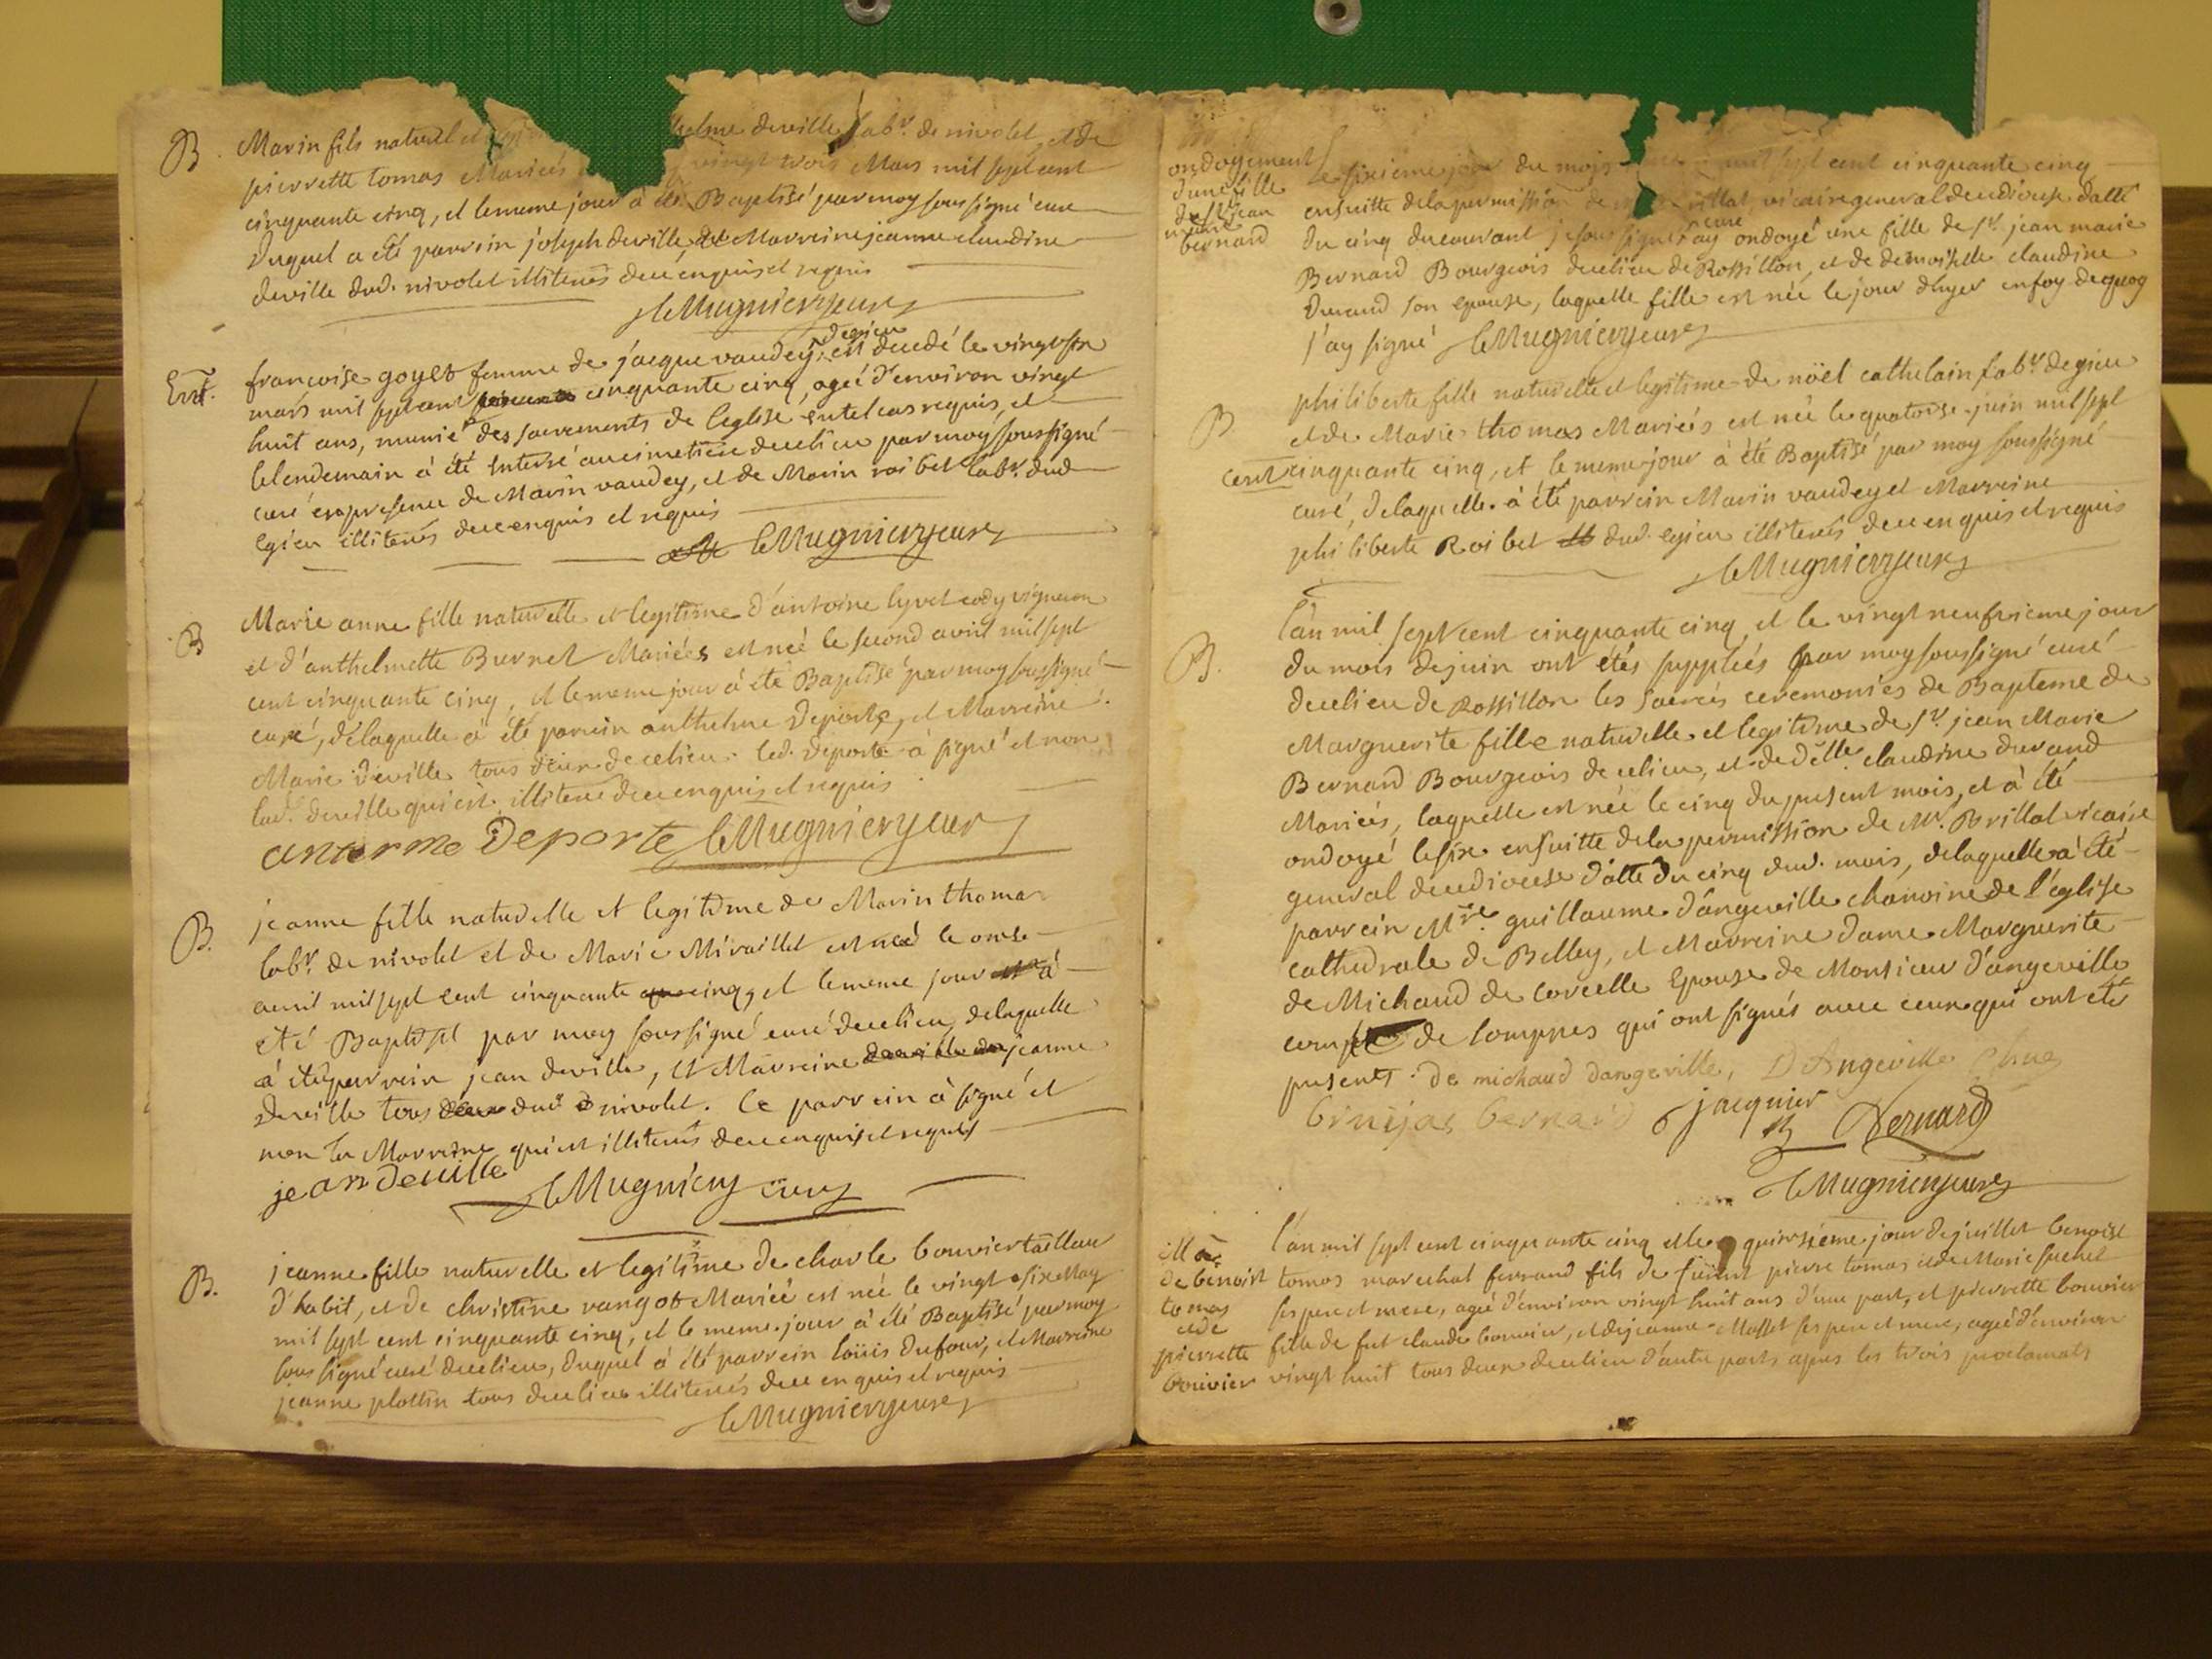 B. Marin fils naturel et helme deville labr. de nivolet, et de
pierrette tomas Mariés vingt trois Mars mil sept cent
cinquante cinq, et le meme jour à été Baptisé par moy soussigné curé
Duquel a été parrin joseph deville, et Marreine jeanne claudine
deville dud. nivolet illiterés de ce enquis et requis
leMugnier curé
Ent. francoise goyet femme de jacque vaudey degieu est decedé le vingt six
mars mil sept cent cinquante cinq, ageé d'environ vingt
huit ans, munie des sacrements de l'eglise en tel cas requis, et
le lendemain à été Enterré au cimetiere de ce lieu par moy soussigné
curé en presence de Marin vaudey, et de Marin roibet labr. dud
egieu illiterés de ce enquis et requis
leMugnier curé
B Marie anne fille naturelle et legitime d'antoine lyvet cody vigneron
et d'anthelmette Burnet Mariées est née le second avril mil sept
cent cinquante cinq, et le meme jour à été Baptisé par moy soussigné
curé, de laquelle à été parrein anthelme Deporte, et Marreine
Marie deville tous deux de ce lieu. led. deporte à signé et non
lad. deville qui est illiterée de ce enquis et requis
Deporte leMugnier curé
B. jeanne fille naturelle et legitime de Marin thomas
labr. de nivolet et de Marie Miraillet est neé le onse
avril mil sept cent cinquante cinq, et le meme jour à
été Baptisé par moy soussigné curé de ce lieu, de laquelle
à été parrein jean deville, et Marreine jeanne
deville tous dud nivolet. le parrein à signé et
non la Marreine qui est illiterée de ce enquis et requis
jean Deville leMugnier curé
B. jeanne fille naturelle et legitime de charle bouvier tailleur
d'habit, et de christine rangot Mariée est née le vingt six May
mil sept cent cinquante cinq, et le meme jour à été Baptisé par moy
sous signé curé de ce lieu, duquel à été parrein loüis dufour, et Marreine
jeanne plottin tous de ce lieu illiterés de ce enquis et requis
leMugnier curé
ondoyement
d'une fille
de sr jean
marie
bernard
Le sixieme jour du mois mil sept cent cinquante cinq
ensuitte de la permission de vicaire general de ce diocese datté
du cinq du courant je sous signé curé ay ondoyé une fille de sr. jean marie
Bernard Bourgeois de ce lieu de Rossillon, et de demoiselle claudine
Durand son epouse, laquelle fille est née le jour d'hyer en foy de quoy
j'ay signé leMugnier curé
B philiberte fille naturelle et legitime de nöel cathelain labr. degieu
et de Marie thomas Mariés est née le quatorse juin mil sept
cent cinquante cinq, et le meme jour à été Baptisé par moy soussigné
curé, de laquelle à été parrein Marin vaudey et Marreine
philiberte Roibet dud. egieu illiterés de ce enquis et requis
leMugnier curé
B. l'an mil sept cent cinquante cinq et le vingt neufvieme jour
du mois de juin ont étés suppleés par moy soussigné curé
de ce lieu de Rossillon les sacrés ceremonies de Bapteme de
Marguerite fille naturelle et legitime de sr. jean Marie
Bernard Bourgeois de ce lieu, et de delle claudine durand
Mariés, laquelle est née le cinq du present mois, et à été
ondoyé le six ensuitte de la permission de Mr. Brillat vicaire
general de ce diocese datté du cinq dud. mois, de laquelle à été
parrein Mre. guillaume d'angeville chanoine de l'église
cathedrale de Belley, et Marreine dame Marguerite
de Michaud de corcelle Epouse de Monsieur d'angeville
de lomppes qui ont signés avec ceux qui ont été
presents. de michaud dangeville, D'Angeville
bernard jacquier Bernard
leMugnier curé
de benoist
tomas
et de
pierrette
bouvier
l'an mil sept cent cinquante cinq et le quinsieme jour de juillet benoist
tomas marechal ferrand fils de füent pierre tomas et de Marie suchet
ses pere et mere, agé d'environ vingt huit ans d'une part, et pierrette bouvier
fille de fut claude bouvier, et de jeanne Mallet ses pere et mere, ageé d'environ
vingt huit tous deux de ce lieu d'autre parts apres les trois proclamats